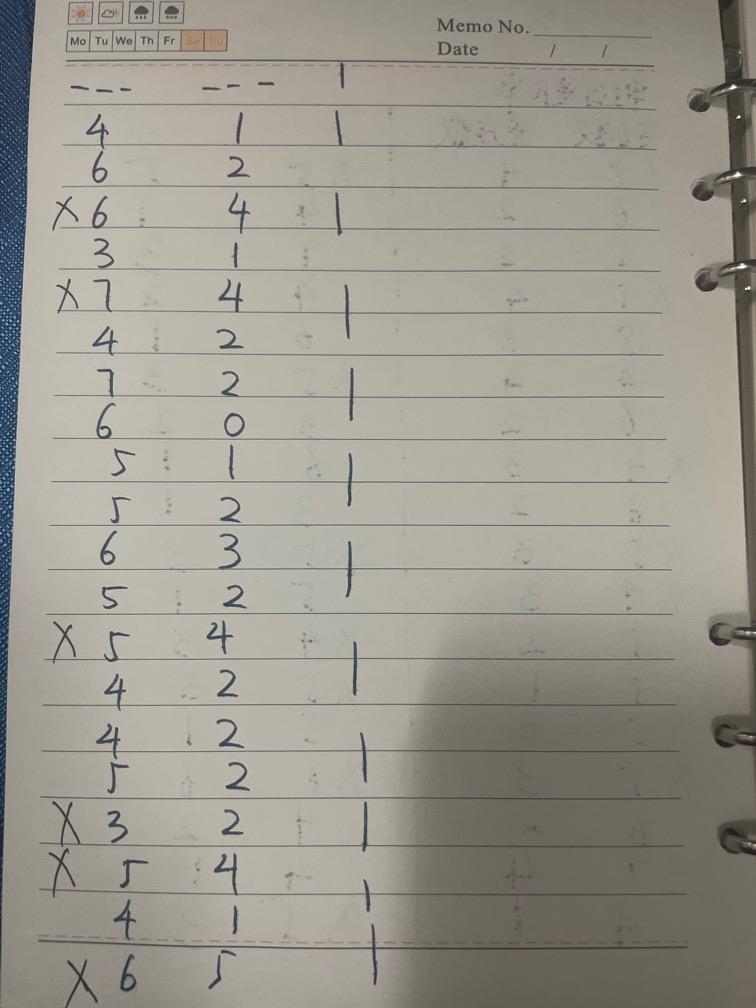 Memo No.
Mo Tu We Th Fr Sa Su
Date / /
--- --- |
4 1 |
6 2
X 6 4 |
3 1
X 7 4 |
4 2
7 2 |
6 0
5 1 |
5 2
6 3 |
5 2
X 5 4 |
4 2
4 2 |
5 2
X 3 2 |
X 5 4 |
4 1 |
X 6 5